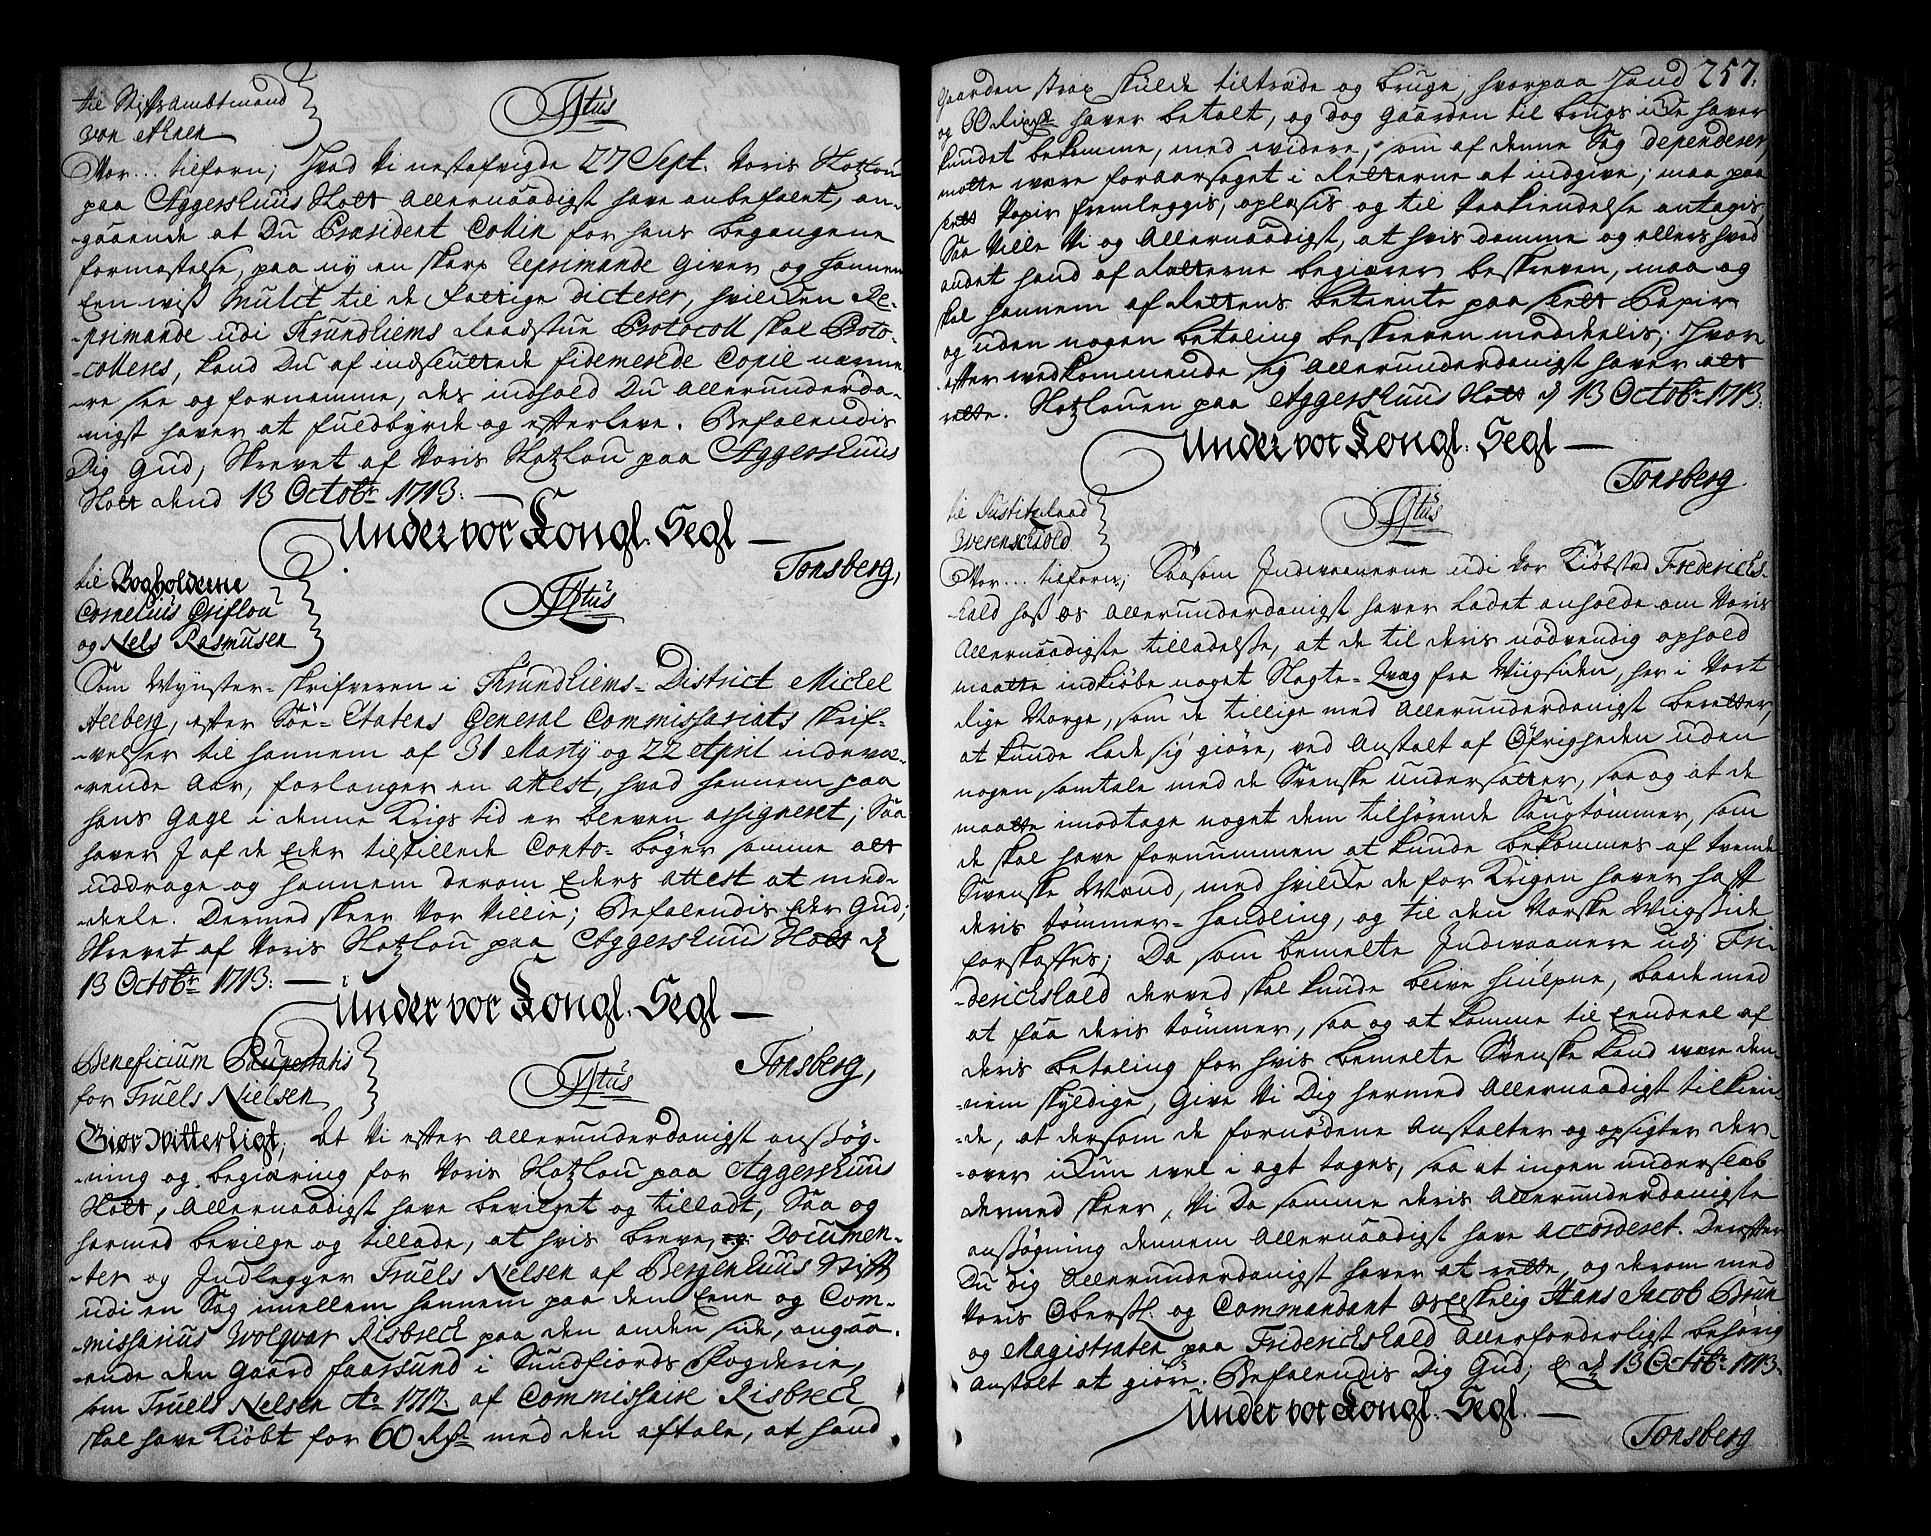 til Stiftsambtmand
von Ahnen
Ftus
Vor... tilforn; Hvad Vi nestafvigde 27 Sept. Voris Slotzlou
paa Aggershuus Slott Allernaadigst have anbefalet, an-
-gaaende at Du Præsident Collin for hans begangene
formastelse, paa ny en skarp Reprimande Giver og hannem
Een wiß Mulct til de fattige dicterer, hvilken Re-
-primande udi Trundhiems Raadstue Protocoll skal Proto-
-colleres, kand Du af indsluttede fidemerede Copie nærme-
-re see og fornemme, des indhold Du Allerunderda-
-nigst haver at fuldbyrde og efterleve. Befalendis
Dig Gud, Skrevet af Voris Slotzlou paa Aggershuus
Slott dend 13 Octobr: 1713.
Under vor Kongl. Segl
Tonsberg,
til Bogholderne
Cornelius Griflou
og Nels Rasmusen
Ftus
Som Mynster-skrifveren i Trundhiems-District Michel
Heeberg, efter Søe-Etatens General Commissariats skrif-
-velser til hannem af 31 Marty og 22 April indevæ-
-rende Aar, forlanger en Attest, hvad hannem paa
hans Gage i denne Krigs tid er bleven assigneret; Saa
haver I af de Eder tilstillede Conto-bøger samme at
uddrage og hannem derom Eders Attest at med-
-deele. Dermed skeer Vor Villie; Befalendis Eder Gud;
Skrevet af Voris Slotzlou paa Aggershuus Slott d
13 Octobr: 1713.
Under vor Kongl. Segl
Tonsberg,
Beneficium Paupertatis
for Truels Nielsen
Ftus
Giør Witterligt, At Vi efter Allerunderdanigst ansøg-
-ning og begiæring for Voris Slotzlou paa Aggershuus
Slott, Allernaadigst have bevilget og tilladt, Saa og
hermed bevilge og tillade, at hvis breve, og Documen-
-ter og Indlegger Truels Nelsen af Bergenhuus Stift
udi en Sag imellem hannem paa den Eene og Com-
-missarius Wolgvar Risbreck paa den anden side, angaa-
-ende den Gaard faarsund i Sundfiords fogderie,
som Truels Nelsen Ao 1712. af Commissaire Risbreck
skal have kiøbt for 60 Rdr. med den aftale, at hand
257.
Gaarden strax skulde tiltræde og bruge, hvorpaa hand
og 30 haver betalt, og dog Gaarden til brugs icke haver
kundet bekomme, med widere, som af denne Sag dependerer,
motte være foraarsaget i Retterne at indgive, maa paa
slett Papir fremleggis, oplæsis og til Paakiendelse antagis,
Saa Ville Vi og Allernaadigst, at hvis domme og ellers hvad
andet hand af Retterne begiærer beskreven, maa og
skal hannem af Rettens betiente paa slett Papir
og uden nogen betaling beskreven meddeelis; Hvor-
-efter vedkommende sig Allerunderdanigst haver at
rette. Slotzlouen paa Aggershuus Slott d 13 Octobr: 1713.
Under vor Kongl. Segl
Tonsberg
til Justitzraad
Werenschiold
Ftus
Vor... tilforn; Saasom Indwaanerne udi vor Kiøbstad Friderichs-
-hald hoß os Allerunderdanigst haver ladet anholde om Voris
Allernaadigste tilladelse, at de til deris nødvendig ophold
maatte indkiøbe noget Slagte-Qvæg fra Wiigsiden, her i Vort
Rige Norge, som de tillige med Allerunderdanigst beretter,
at kunde lade sig giøre, ved Anstalt af Øfrigheden uden
nogen samtale med de Svenske undersatter, saa og at de
maatte imodtage noget dem tilhørende Saugtømmer, som
de skal have fornummen at kunde bekommes af tvende
Swenske Mænd, med hvilcke de for Krigen haver haft
deris tømmer-handling, og til den Norske Wiigside
forskaffes; Da som bemelte Indwaanere udj Fri-
-derichshald derved skal kunde blive hiulpne, baade med
at faa deris tømmer, saa og at komme til Eendeel af
deris betaling for hvis bemelte Svenske kand være den-
-nem skyldige, Give Vi Dig hermed Allernaadigst tilkien-
-de, at dersom de fornødene Anstalter og opsigter der-
-over ickun vel i agt tages, saa at ingen underslæb
dermed skeer, Vi Da samme deris Allerunderdanigste
ansøgning dennem Allernaadigst have accorderet. Derefter
Du dig Allerunderdanigst haver at rette, og derom med
Voris Oberstl. og Commandant Velskelig Hans Jacob Brun
og Magistraten paa Friderichshald Allerforderligst behørig
Anstalt at giøre. Befalendis Dig Gud; d 13 Octobr: 1713.
Under vor Kongl. Segl.
Tonsberg